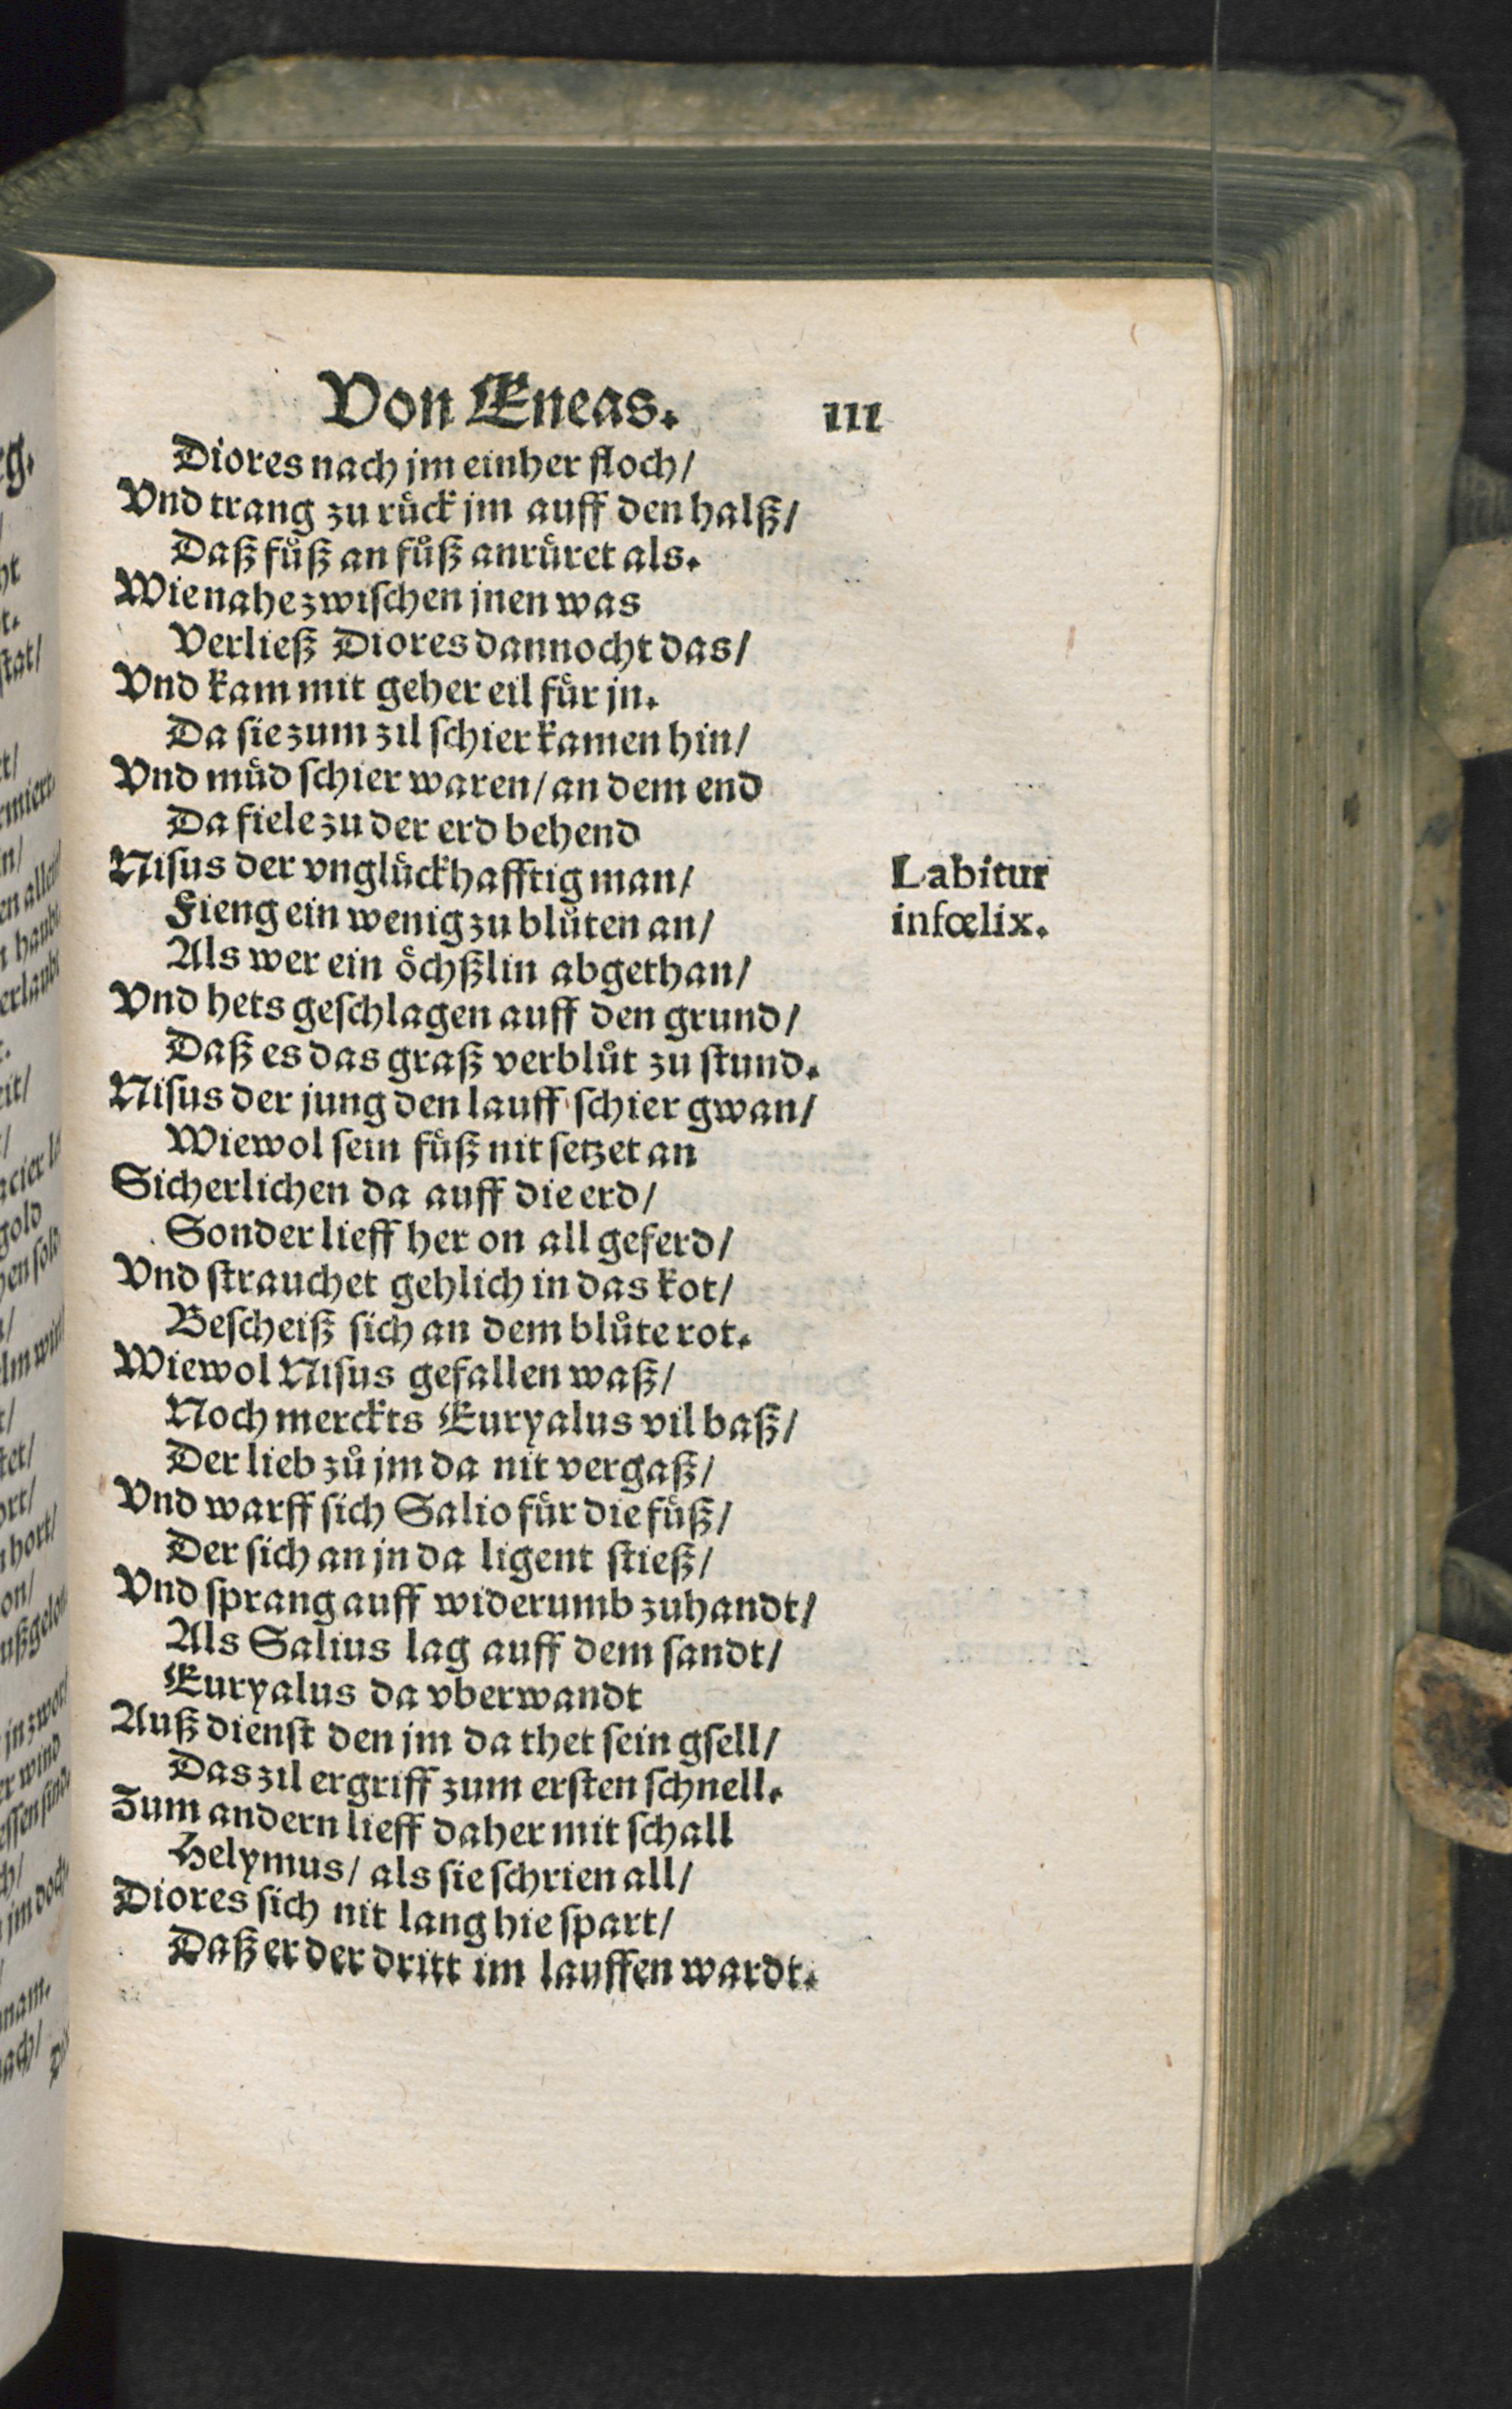 Von Eneas. 111
Diores nach jm einher floch/
Vnd trang zu rück jm auff den halß/
Daß fůß an fůß anrüret als.
Wie nahe zwischen jnen was
Verließ Diores dannocht das/
Vnd kam mit geher eil für jn.
Da sie zum zil schier kamen hin/
Vnd müd schier waren/ an dem end
Da fiele zu der erd behend
Nisus der vnglückhafftig man/
Labitur
Fieng ein wenig zu blůten an/
infœlix.
Als wer ein öchßlin abgethan/
Vnd hets geschlagen auff den grund/
Daß es das graß verblůt zu stund.
Nisus der jung den lauff schier gwan/
Wiewol sein fůß nit setzet an
Sicherlichen da auff die erd/
Sonder lieff her on all geferd/
Vnd strauchet gehlich in das kot/
Bescheiß sich an dem blůte rot.
Wiewol Nisus gefallen waß/
Noch merckts Euryalus vil baß/
Der lieb zů jm da nit vergaß/
Vnd warff sich Salio für die füß/
Der sich an jn da ligent stieß/
Vnd sprang auff widerumb zuhandt/
Als Salius lag auff dem sandt/
Euryalus da vberwandt
Auß dienst den jm da thet sein gsell/
Das zil ergriff zum ersten schnell.
Zum andern lieff daher mit schall
Helymus/ als sie schrien all/
Diores sich nit lang hie spart/
Daß er der dritt im lauffen wardt.